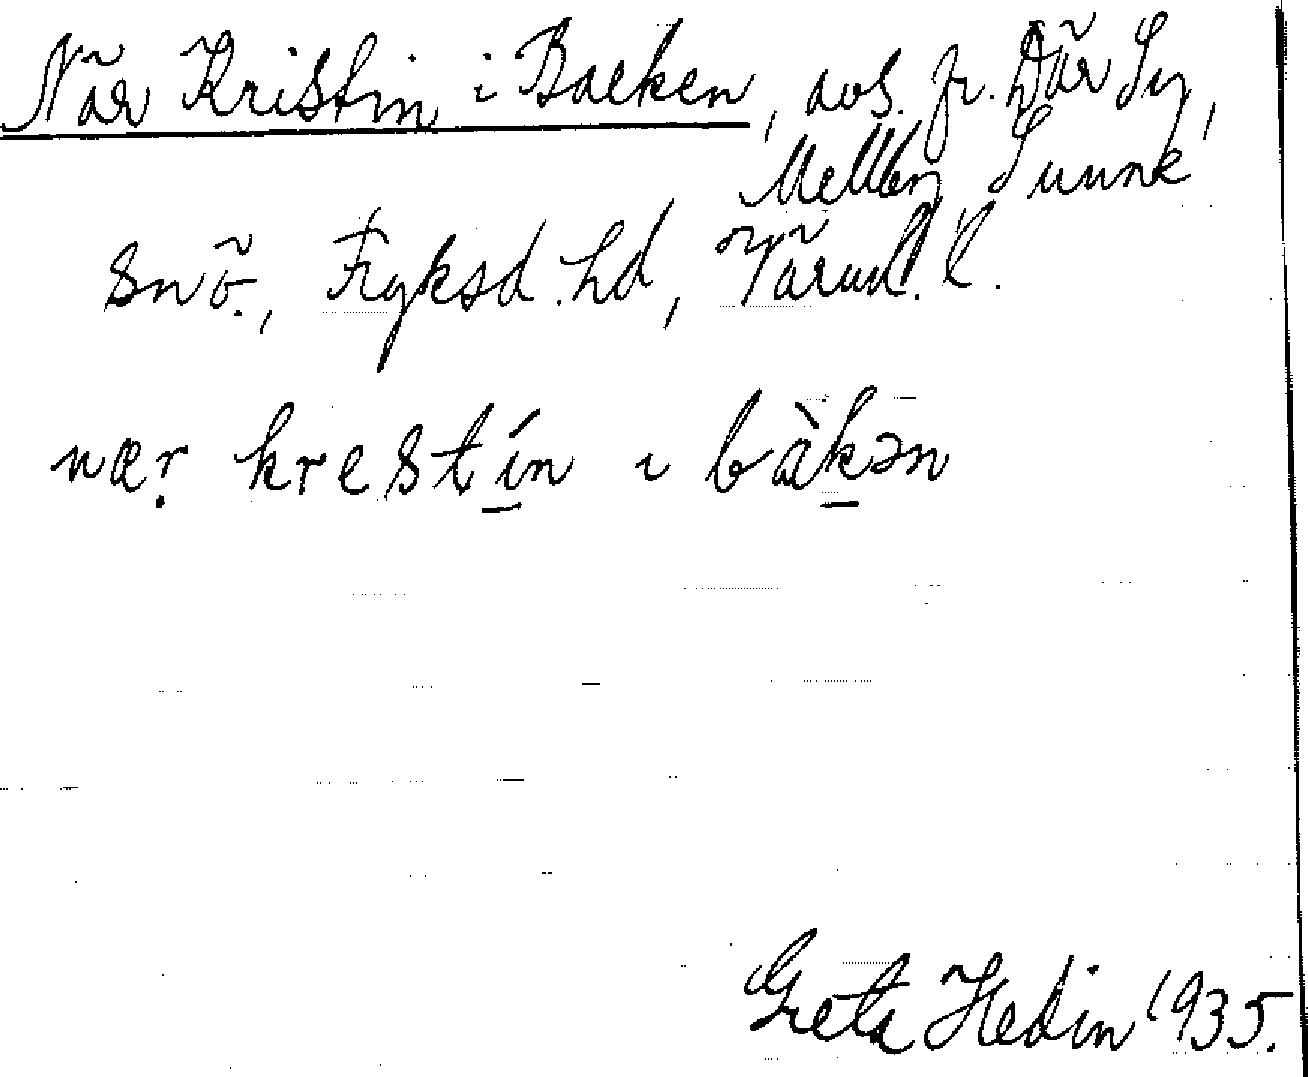 När Kristin i Backen, avs. fr. Där Sy,
Mellby Sunne
snö., Fryksd. hd, Värml. l.
nær krestín ı bàkən
Greta Hedin 1935.